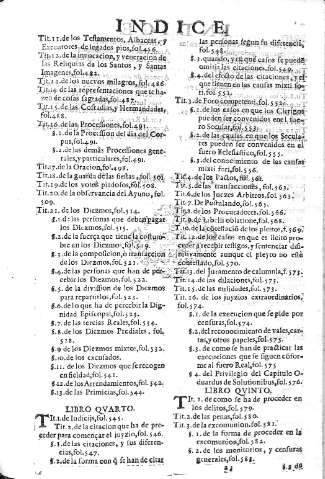 INDICE
Tit.11.de los Testamentos, Albaceas, y
Executores de legados pios, fol.456.
Tit.12.de la invocacion, y veneracion de
las Reliquias de los Santos, y Santas
Imagenes, fol.482.
Tit.13.de los nuevos milagros, fol.486.
Tit.14.de las representaciones que se han
de cosas sagradas, fol.487.
Tit.15.de las Cofradias, y Hermandades,
fol.488.
Tit.16.de las Procesiones, fol.491.
§.1.de la Procession del dia del Cor-
pus, fol.491.
§.2.de las demàs Processiones gene-
rales, y particulares, fol.491.
Tit.17.de la Oracion, fol.495.
Tit.18.de la guarda de las fiestas, fol.
Tit.19.de los votos piadosos, fol.508.
Tit.20.de la observancia del Ayuno, fol.
509.
Tit.21.de los Diezmos, fol.514.
§.1.de las personas que deben pagar
los Diezmos, fol.515.
§.2.de la fuerça que tiene la costum-
bre en los Diezmos, fol.519.
§.3.de la composicion, o transaccion
de los Diezmos, fol.522.
§.4.de las personas que han de per-
cebir los Diezmos, fol.522.
§.5.de la division de los Diezmos
para repartirlos, fol.525.
§.6.de lo que ha de percebir la Dig-
nidad Episcopal, fol.525.
§.7.de las tercias Reales, fol.554.
§.8.de los Diezmos Prediales, fol.
528.
§.9.de los Diezmos mixtos, fol.532.
§.10.de los excusados.
§.11.de los Diezmos que se recogen
en fieldad, fol.541.
§.12.de los Arrendamientos, fol.542.
§.13.de las Primicias, fol.544.
LIBRO QVARTO.
Tit.1.de Indicijs, fol.545.
Tit.2.de la citacion que ha de pro-
ceder para començar el juyzio, fol.546.
§.1.de las citaciones, y sus diferen-
cias, fol.547.
§.2.de la forma con q̃ se han de citar
las personas segun su diferencia,
fol.548.
§.3.quando, y en què casos se puede
omitir las citaciones, fol.549.
§.4.del efecto de las citaciones, y el
que tienen en las causas mixti fo-
ri, fol.552.
Tit.3.de Foro competenti, fol.552.
§.1.de los casos en que los Clerigos
pueden ser convenidos en el fue-
ro Secular, fol.553.
§.2.de las causas en que los Secula-
res pueden ser convenidos en el
fuero Eclesiastico, fol.555.
§.3.del conocimiento de las causas
mixti fori, fol.556.
Tit.4.de los Pactos, fol.
Tit.5.de las transacciones, fol.563.
Tit.6.de los Juezes Arbitros, fol.563.
Tit.7.De Postulando, fol.565.
Tit.8.de los Procuradores, fol.566.
Tit.9.de Libelli oblatione, fol.568.
Tit.10.de la contestacion de los pleitos, fol.569.
Tit.12.de los casos en que es licito pro-
ceder à recebir testigos, y sentenciar difi-
nitivamente aunque el pleyto no estè
contestado, fol.570.
Tit.13.del juramento de calumnia, f.573.
Tit.14.de las dilaciones, fol.573.
Tit.15.de las nulidades, fol.573.
Tit.16.de los juyzios extraordinarios,
fol.574.
§.1.de la execucion que se pide por
censuras, fol.574.
§.2.del reconocimiento de vales, car-
tas, y otros papeles, fol.575.
§.3.de como se han de practicar las
execuciones que se siguen cõfor-
me al fuero Real, fol.575.
§.4.del Privilegio del Capitulo O-
duardus de Solutionibus, fol.576.
LIBRO QUINTO.
Tit.1.de como se ha de proceder en
los delitos, fol.579.
Tit.2.de las penas, fol.580.
Tit.3.de la excomunion, fol.582.
§.1.de la forma de proceder en la
excomunion, fol.582.
§.2.de los monitorios, y censuras
generales, fol.583.
§.3.de